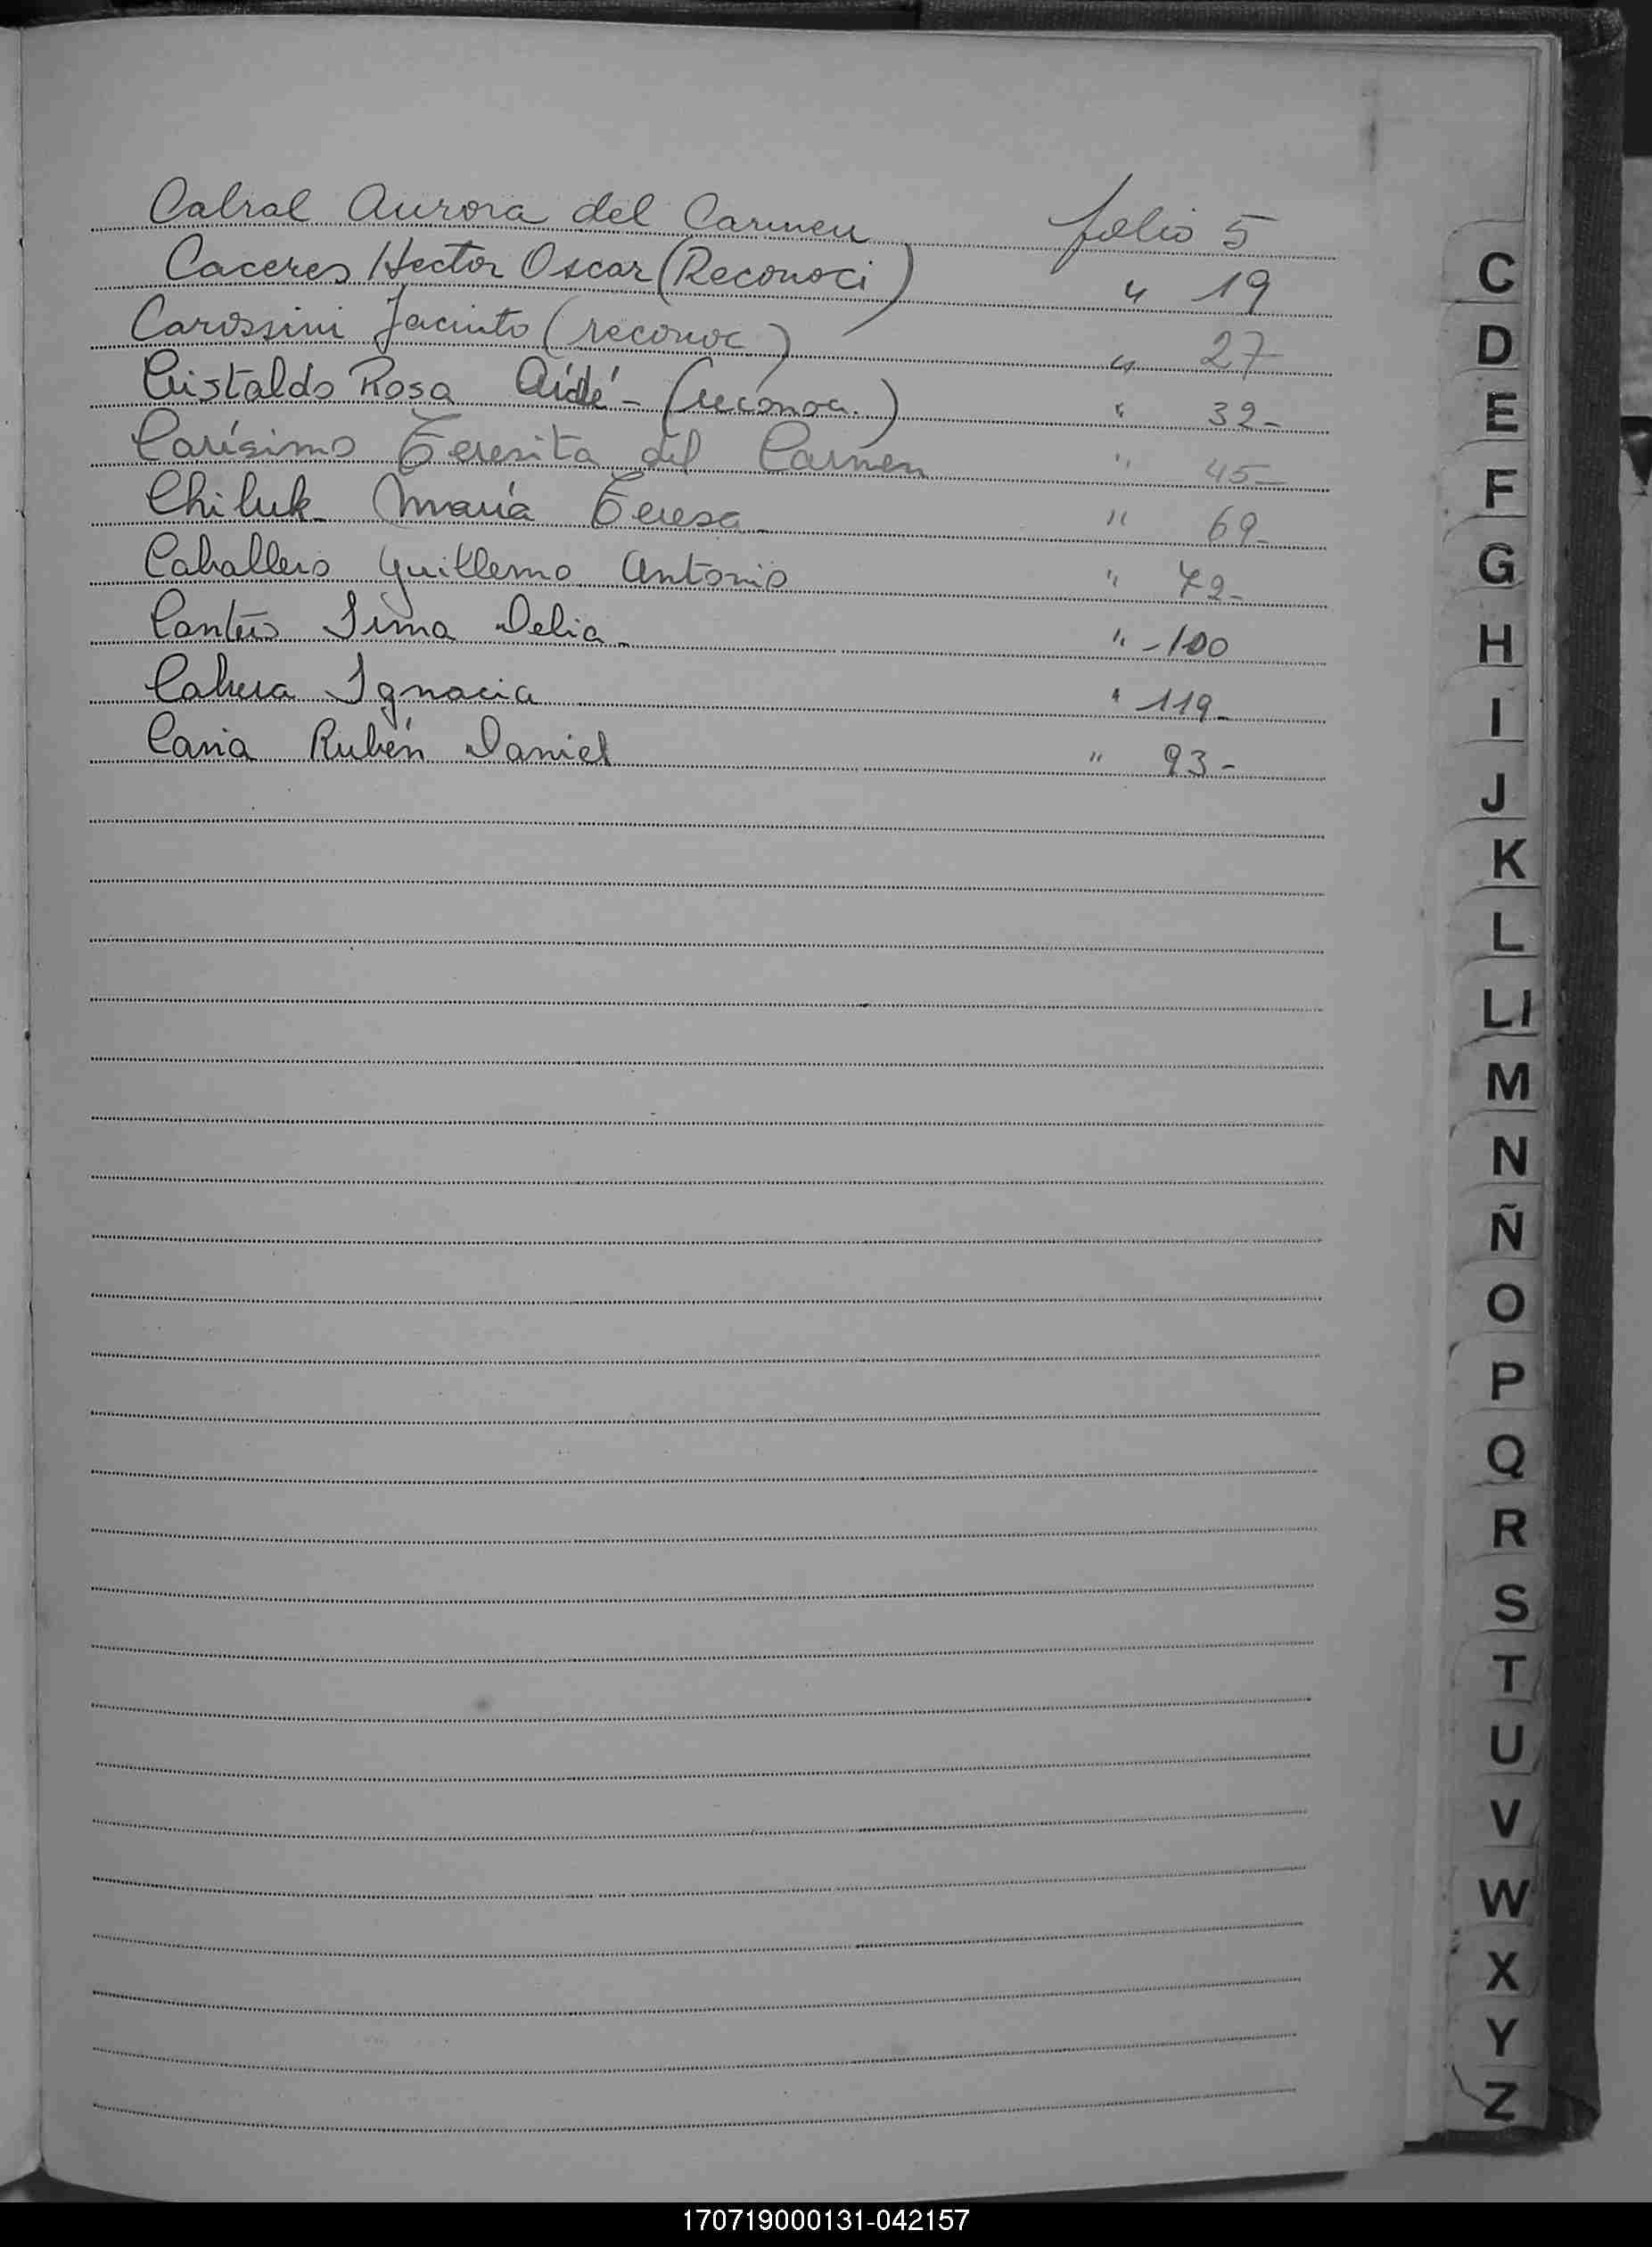 Cabral Aurora del Carmen folio 5
Caceres Hector Oscar (Reconoci) " 19
Carossini Jacinto (reconoc) " 27
Cristaldo Rosa Aidé - (reconoc.) " 32-
Carísimo Teresita del Carmen " 45-
Chiluk María Teresa " 69-
Caballero Guillermo Antonio " 72-
Cantero Irma Delia " -100
Cabrera Ignacia " 119-
Rubén Daniel " 93-
C
D
E
F
G
H
I
J
K
L
Ll
M
N
Ñ
O
P
Q
R
S
T
U
V
W
X
Y
Z
170719000131-042157